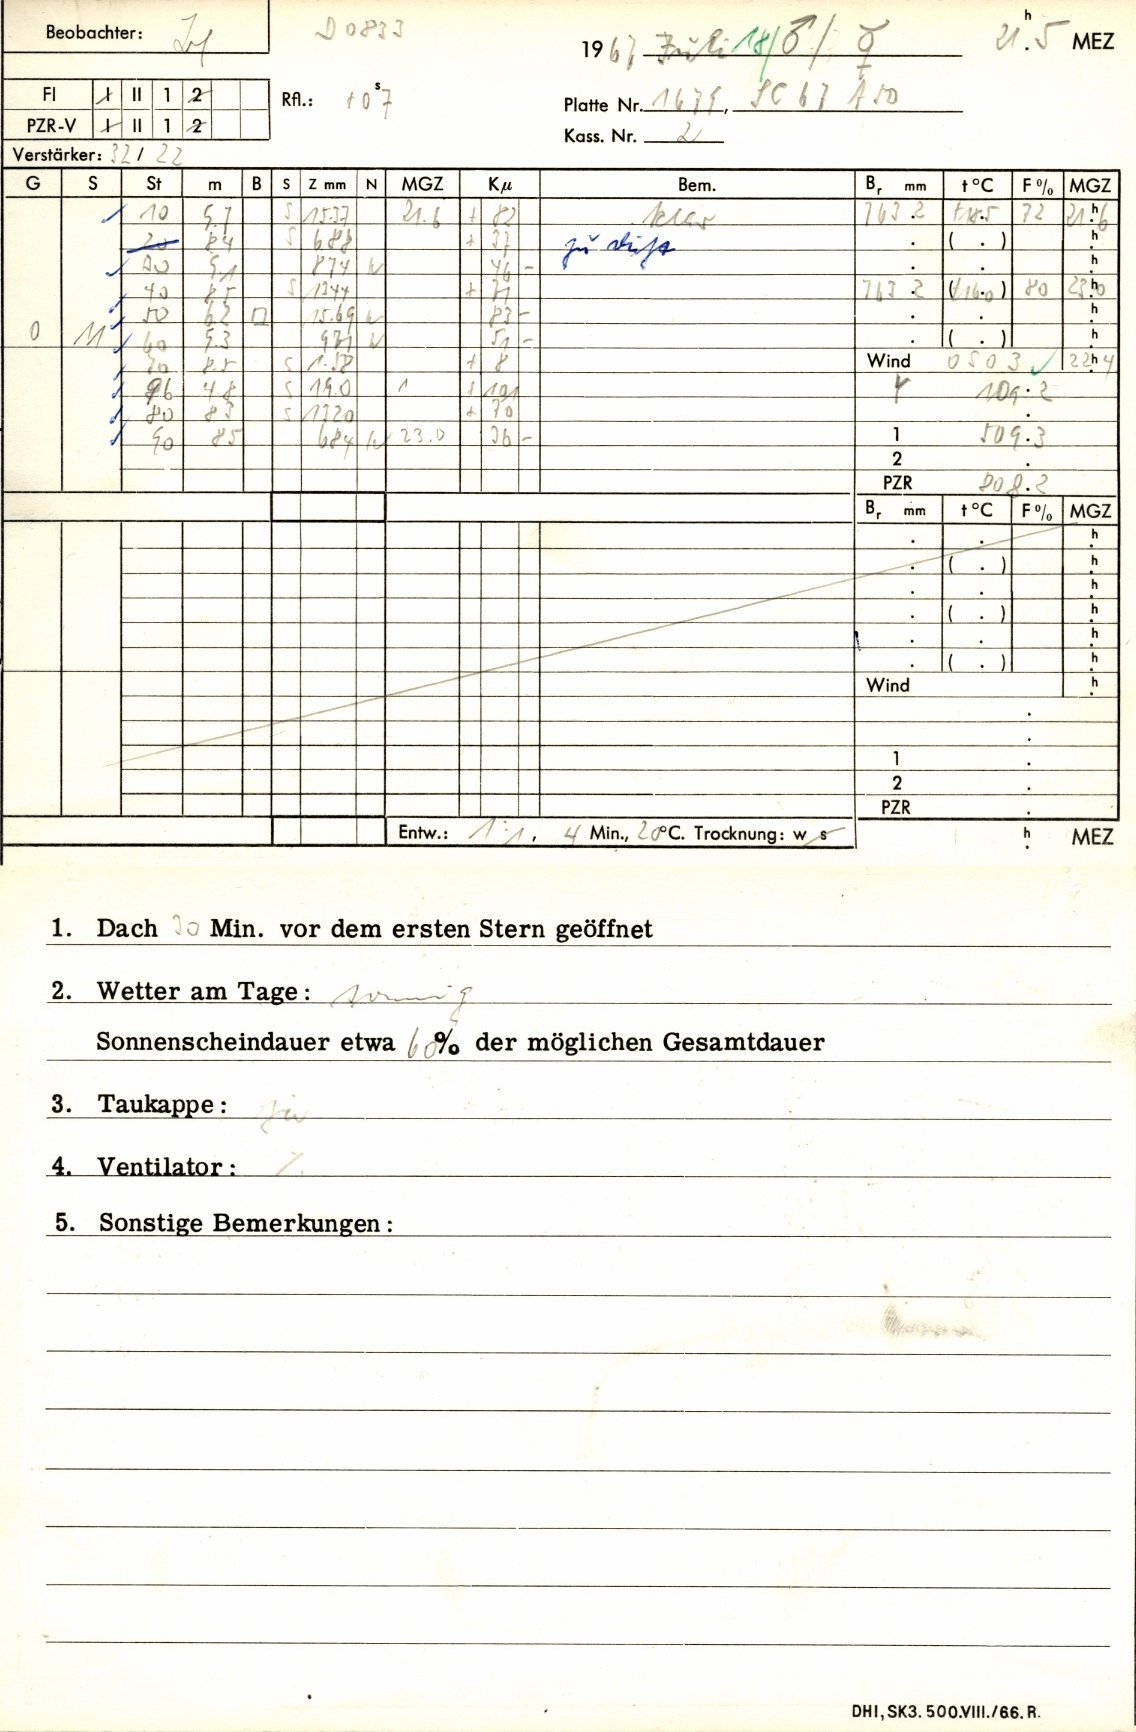 Beobachter: D 0833 1967 Juli 18/♂/☿ 21.h5 MEZ
FI I II 1 2 Rfl.: +0s7 Platte Nr. 1679, SC 67 A 50
PZR-V I II 1 2 Kass. Nr. 2
Verstärker: 32 / 22
G S St m B S Z mm N MGZ Kμ Bem. Br mm t °C F % MGZ
10 9.7 S 1537 21.6 + 82 klar 763.2 +18.5 72 21.h6
20 8.4 S 688 + 37 zu dicht ( . ) h
9.1 874 N 46 - . . h
40 8.5 S 1344 + 763.2 (+16.0) 80 23.h0
50 6.2 □ 15.69 N 83 - . . h
0 11 60 9.3 971 N 51 - . ( . ) h
8.5 S + 8 Wind 0503 22h4
96 4.8 S 19.0 + 101 109.2
80 8.3 S 1320 + 70 .
90 8.5 684 N 23.0 36 - 1 509.3
2 .
PZR 808.2
Br mm t °C F % MGZ
. . h
. ( . ) h
. . h
. ( . ) h
. . h
. ( . ) h
Wind h
.
.
1 .
2 .
PZR .
Entw.: 1:1, 4 Min., 20°C. Trocknung: w s h MEZ
1. Dach 30 Min. vor dem ersten Stern geöffnet
2. Wetter am Tage: sonnig
Sonnenscheindauer etwa 60% der möglichen Gesamtdauer
3. Taukappe: ja
4. Ventilator: /.
5. Sonstige Bemerkungen:
DHI, SK3. 500.VIII./66. R.